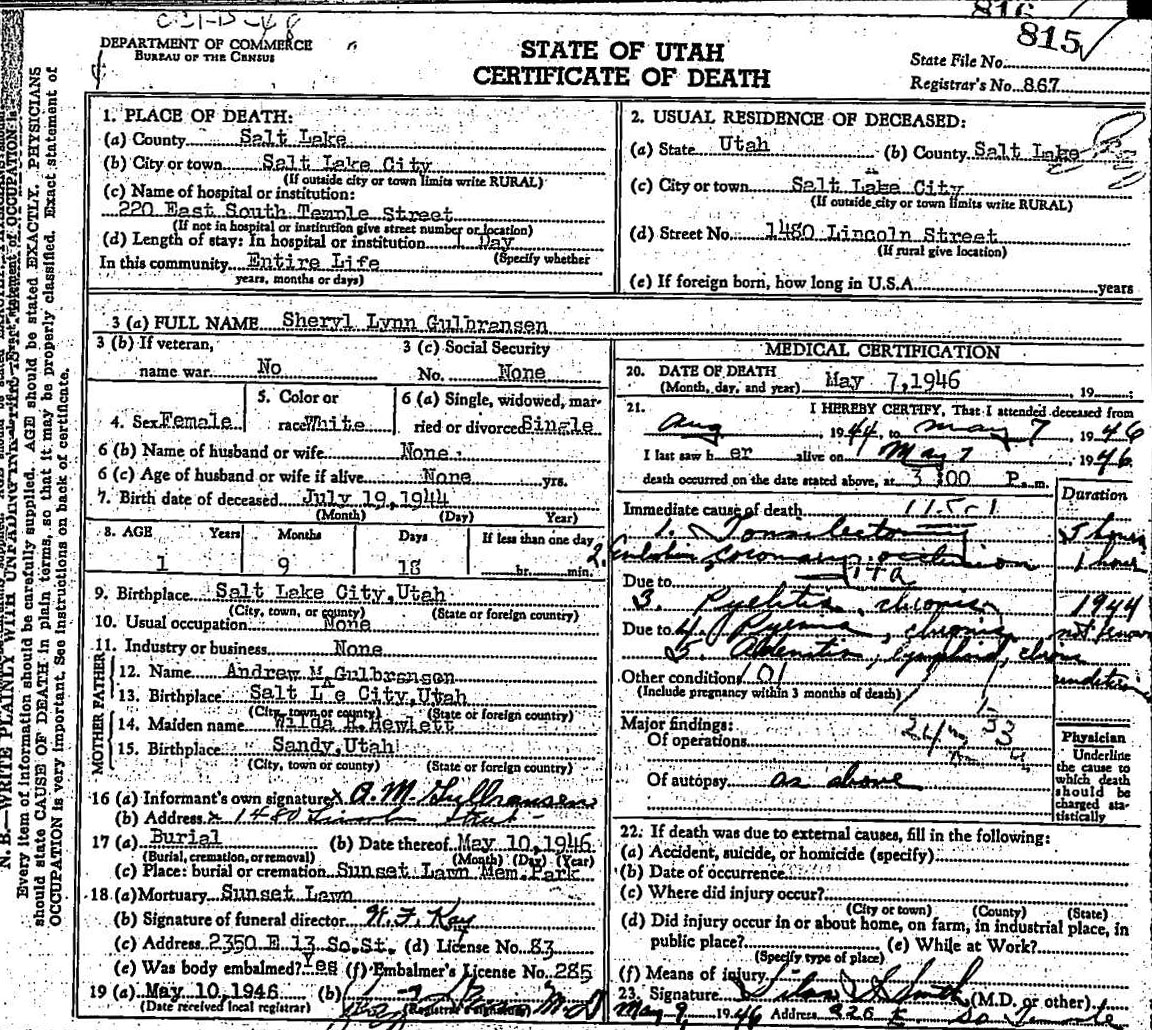 816
815
DEPARTMENT OF COMMERCE
BUREAU OF THE CENSUS
STATE OF UTAH
CERTIFICATE OF DEATH
State File No.
Registrar's No. 867
1. PLACE OF DEATH:
(a) County Salt Lake
(b) City or town Salt Lake City
(If outside city or town limits write RURAL)
(c) Name of hospital or institution:
220 East South Temple Street
(If not in hospital or institution give street number or location)
(d) Length of stay: In hospital or institution 1 Day
(Specify whether
In this community Entire Life
years, months or days)
2. USUAL RESIDENCE OF DECEASED:
(a) State Utah (b) County Salt Lake
(c) City or town Salt Lake City
(If outside city or town limits write RURAL)
(d) Street No. 1480 Lincoln Street
(If rural give location)
(e) If foreign born, how long in U.S.A. years
3 (a) FULL NAME Sheryl Lynn Gulbransen
3 (b) If veteran, 3 (c) Social Security
name war. No No. None
4. Sex Female 5. Color or race White 6 (a) Single, widowed, married or divorced Single
6 (b) Name of husband or wife None
6 (c) Age of husband or wife if alive None yrs.
7. Birth date of deceased July 19, 1944
(Month) (Day) Year)
8. AGE Years Months Days If less than one day
1 9 18 hr. min.
9. Birthplace Salt Lake City, Utah
(City, town, or county) (State or foreign country)
10. Usual occupation None
11. Industry or business None
FATHER
12. Name Andrew M Gulbransen
13. Birthplace Salt L e City, Utah
(City, town or county) (State or foreign country)
MOTHER
14. Maiden name Wilda R. Hewlett
15. Birthplace Sandy, Utah
(City, town or county) (State or foreign country)
16 (a) Informant's own signature x A. M. Gulbransen
(b) Address x 1480 Lincoln Street
17 (a) Burial (b) Date thereof May 10, 1946
(Burial, cremation, or removal) (Month) (Day) (Year)
(c) Place: burial or cremation Sunset Lawn Mem. Park
18 (a) Mortuary Sunset Lawn
(b) Signature of funeral director W. F. Kay
(c) Address 2350 E 13 So. St. (d) License No. 83
(e) Was body embalmed? Yes (f) Embalmer's License No. 285
19 (a) May 10, 1946 (b) M.D
(Date received local registrar) (Registrar's signature)
MEDICAL CERTIFICATION
20. DATE OF DEATH
(Month, day, and year) May 7, 1946 19
21. I HEREBY CERTIFY, That I attended deceased from
Aug 1944, to May 7, 1946
I last saw h er alive on May 7 1946
death occurred on the date stated above, at 3:00 P.m.
Duration
Immediate cause of death 115-1
1. Tonsilectomy 5 hours
2. coronary occlusion 1 hour
Due to
3. Pyelitis, chronic 1944
Due to 4. Pyemia, chronic not known
5. Adenitis, lymphoid, chronic
Other conditions 101
(Include pregnancy within 3 months of death)
Major findings:
Of operations
Of autopsy as above
Physician
Underline
the cause to
which death
should be
charged sta-
tistically
22. If death was due to external causes, fill in the following:
(a) Accident, suicide, or homicide (specify)
(b) Date of occurrence
(c) Where did injury occur?
(City or town) (County) (State)
(d) Did injury occur in or about home, on farm, in industrial place, in
public place? (e) While at Work?
(Specify type of place)
(f) Means of injury
23. Signature Silas S. Smith (M.D. or other)
May 9, 1946 Address 220 E So Temple
N. B.—WRITE PLAINLY WITH UNFADING
Every item of information should be carefully supplied. AGE should be stated EXACTLY. PHYSICIANS
should state CAUSE OF DEATH in plain terms, so that it may be properly classified. Exact statement of
OCCUPATION is very important. See instructions on back of certificate.